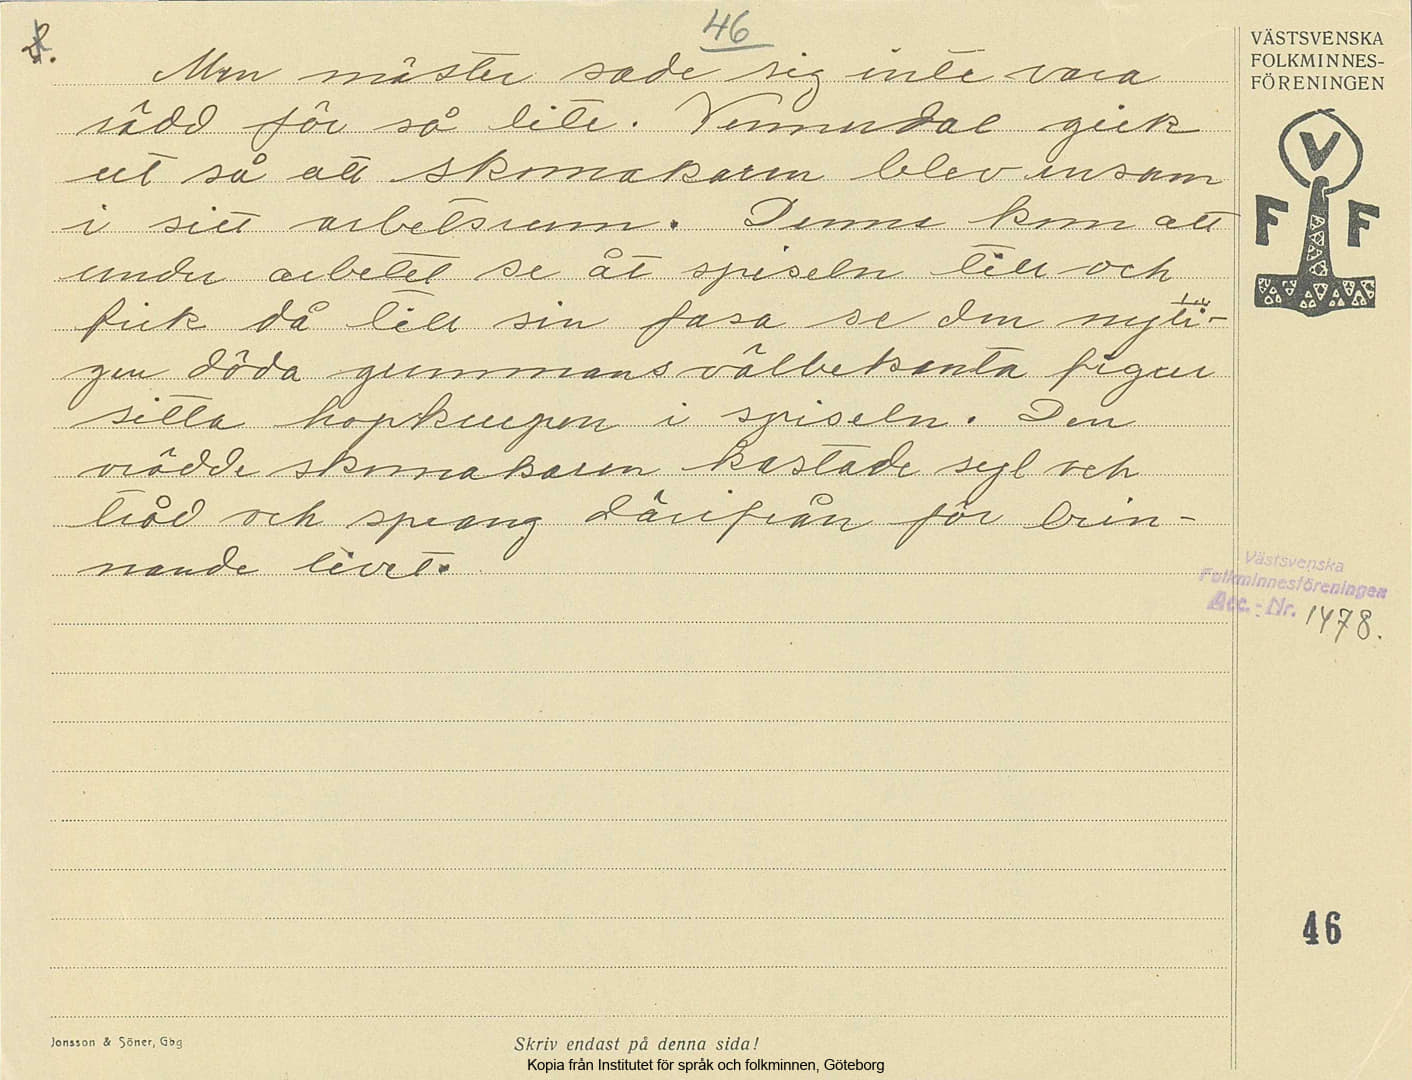 46
2.
Men mäster sade sig inte vara
rädd för så lite. Vennerdal gick
ut så att skomakaren blev ensam
i sitt arbetsrum. Denne kom att
under arbetet se åt spiseln till och
fick då till sin fasa se den nyli-
gen döda gummans välbekanta figur
sitta hopkrupen i spiseln. Den
rädde skomakaren kastade syl och
tråd och sprang därifrån för brin-
nande livet.
VÄSTSVENSKA
FOLKMINNES-
FÖRENINGEN
V
F F
Västsvenska
Folkminnesföreningen
Acc. - Nr. 1478.
46
Jonsson & Söner, Gbg
Skriv endast på denna sida!
Kopia från Institutet för språk och folkminnen, Göteborg